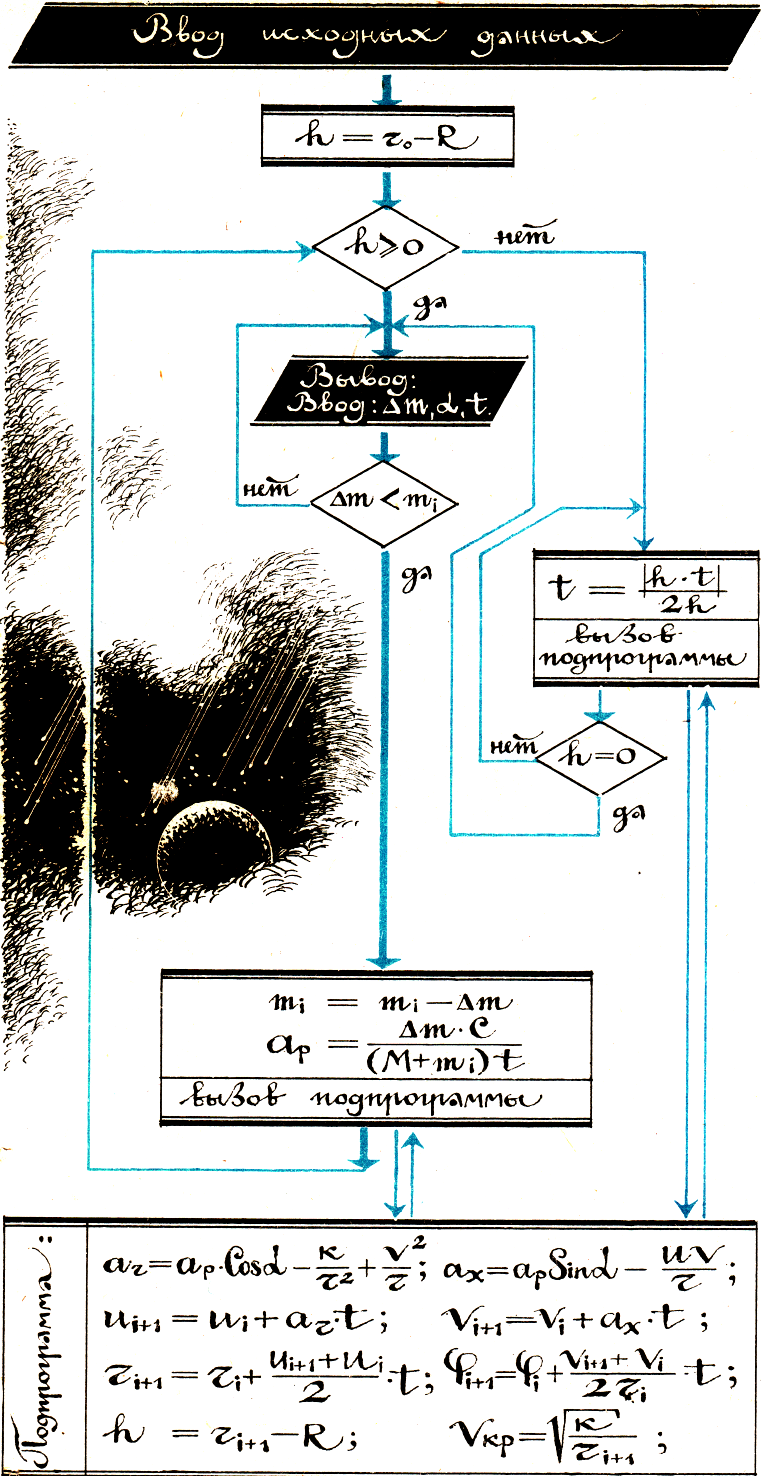 Ввод исходных данных
h = r₀ − R
h ⩾ 0
нет
да
Вывод:
Ввод: Δm, α, t.
нет
Δm < mᵢ
да
t = |h · t| / 2h
вызов
подпрограммы
нет
h = 0
да
mᵢ = mᵢ − Δm
aₚ = Δm · C / (M + mᵢ) t
вызов подпрограммы
Подпрограмма:
a_r = aₚ · Cosα − K/r² + V²/r; aₓ = aₚ Sinα − UV/r;
uᵢ₊₁ = uᵢ + a_r · t; Vᵢ₊₁ = Vᵢ + aₓ · t;
rᵢ₊₁ = rᵢ + (uᵢ₊₁ + uᵢ)/2 · t; φᵢ₊₁ = φᵢ + (Vᵢ₊₁ + Vᵢ)/2rᵢ · t;
h = rᵢ₊₁ − R; Vкр = √(K/rᵢ₊₁);